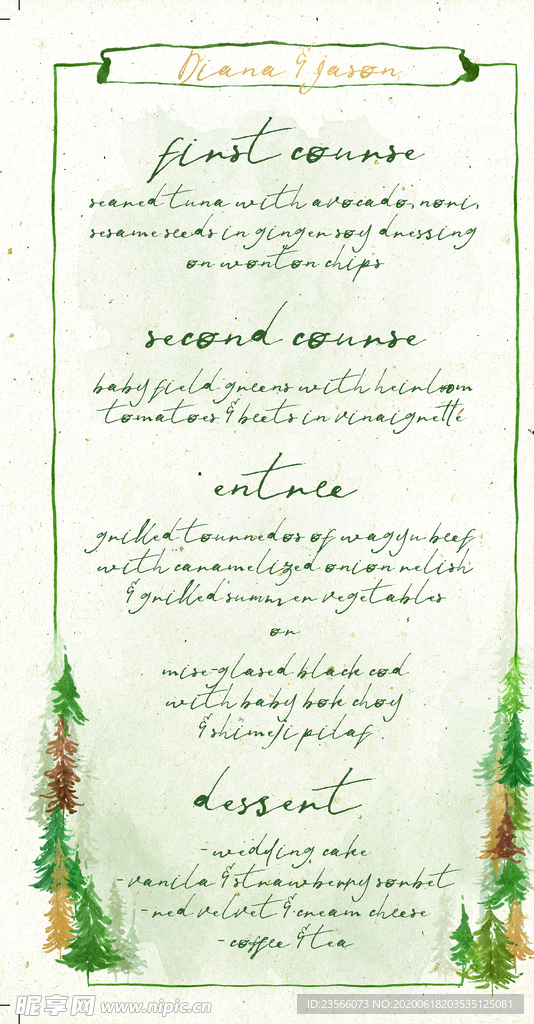 Diana & Jason
first course
seared tuna with avocado, nori,
sesame seeds in ginger soy dressing
on wonton chips
second course
baby field greens with heirloom
tomatoes & beets in vinaigrette
entree
grilled tournedos of wagyu beef
with caramelized onion relish
& grilled summer vegetables
or
mise-glased black cod
with baby bok choy
& shimeji pilaf
dessert
-wedding cake
-vanila & strawberry sorbet
-red velvet & cream cheese
-coffee & tea
昵享网 www.nipic.cn
ID:23566073 NO:20200618203535125081